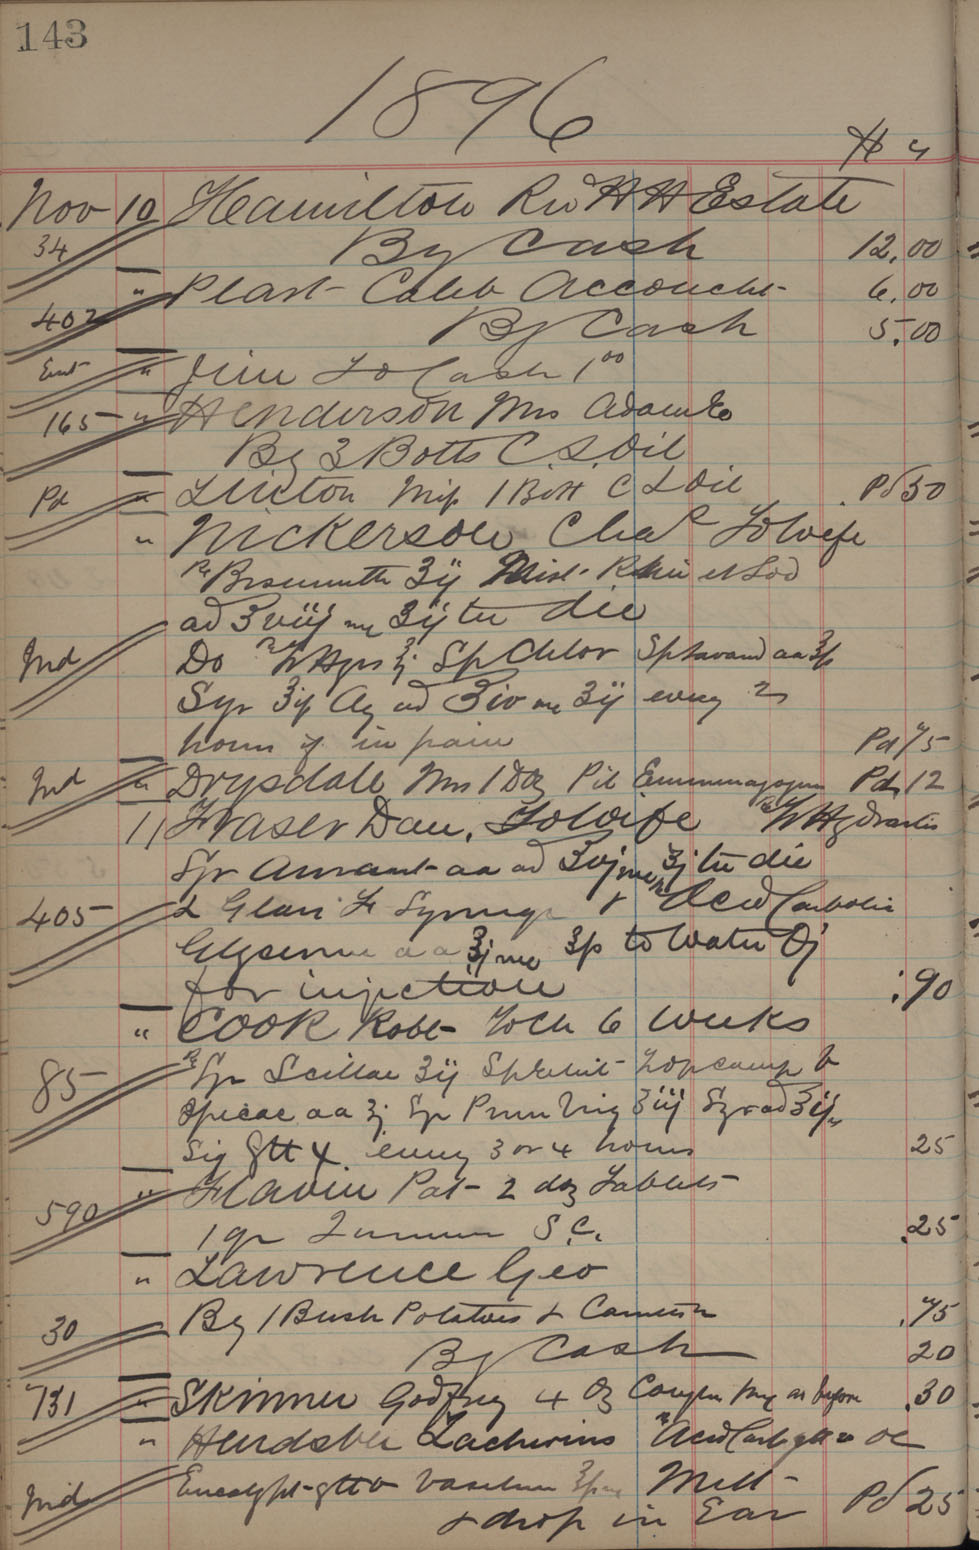 143
1896
Nov 10 Hamilton Rev H H Estate
34 By Cash 12.00
" Plant Caleb Accoucht 6.00
402 By Cash 5.00
Ent " Jim To Cash 1 00
165 " Henderson Mrs Adam
By 3 Botts C. L. Oil
Pd " Linton 1 Bott C L Oil Pd 50
" Nickerson Chas To Wife
Rx Bismuth ʒij Mist Rhei et Sod
ad ℥viij ʒij ter die
Ind Do Rx Sp Chlor Sp Lavand aa ʒss
Syr ad ℥iv ʒij every 2
hours if in pain Pd 75
Ind " Drysdale Mrs 1 Doz Pil Emmenagogue Pd 12
11 Fraser Dan. To Wife Rx Tr Hydrastis
Syr Aurant aa ad ℥vj ʒj ter die
405 & Glass F Syringe & Rx Acid Carbolic
Glycerine aa ℥j ʒss to Water Oj
for injection .90
" Cook Robt To Ch 6 weeks
85 Rx Syr Scillae ʒij Sp Tr Op camp V
Ipecac aa ʒj Syr Prun Virg ʒiij Syr ad
Sig gtt X every 3 or 4 hours 25
590 " Flavin Pat 2 doz Tablets
1 gr Quinine S.C. .25
" Lawrence Geo
30 By 1 Bush Potatoes & .75
By Cash 20
731 " Skinner Godfrey 4 Oz Cough as before .30
" Rx Acid Carb gtt
Ind Eucalypt gtt v Vaseline Melt
& drop in Ear Pd 25